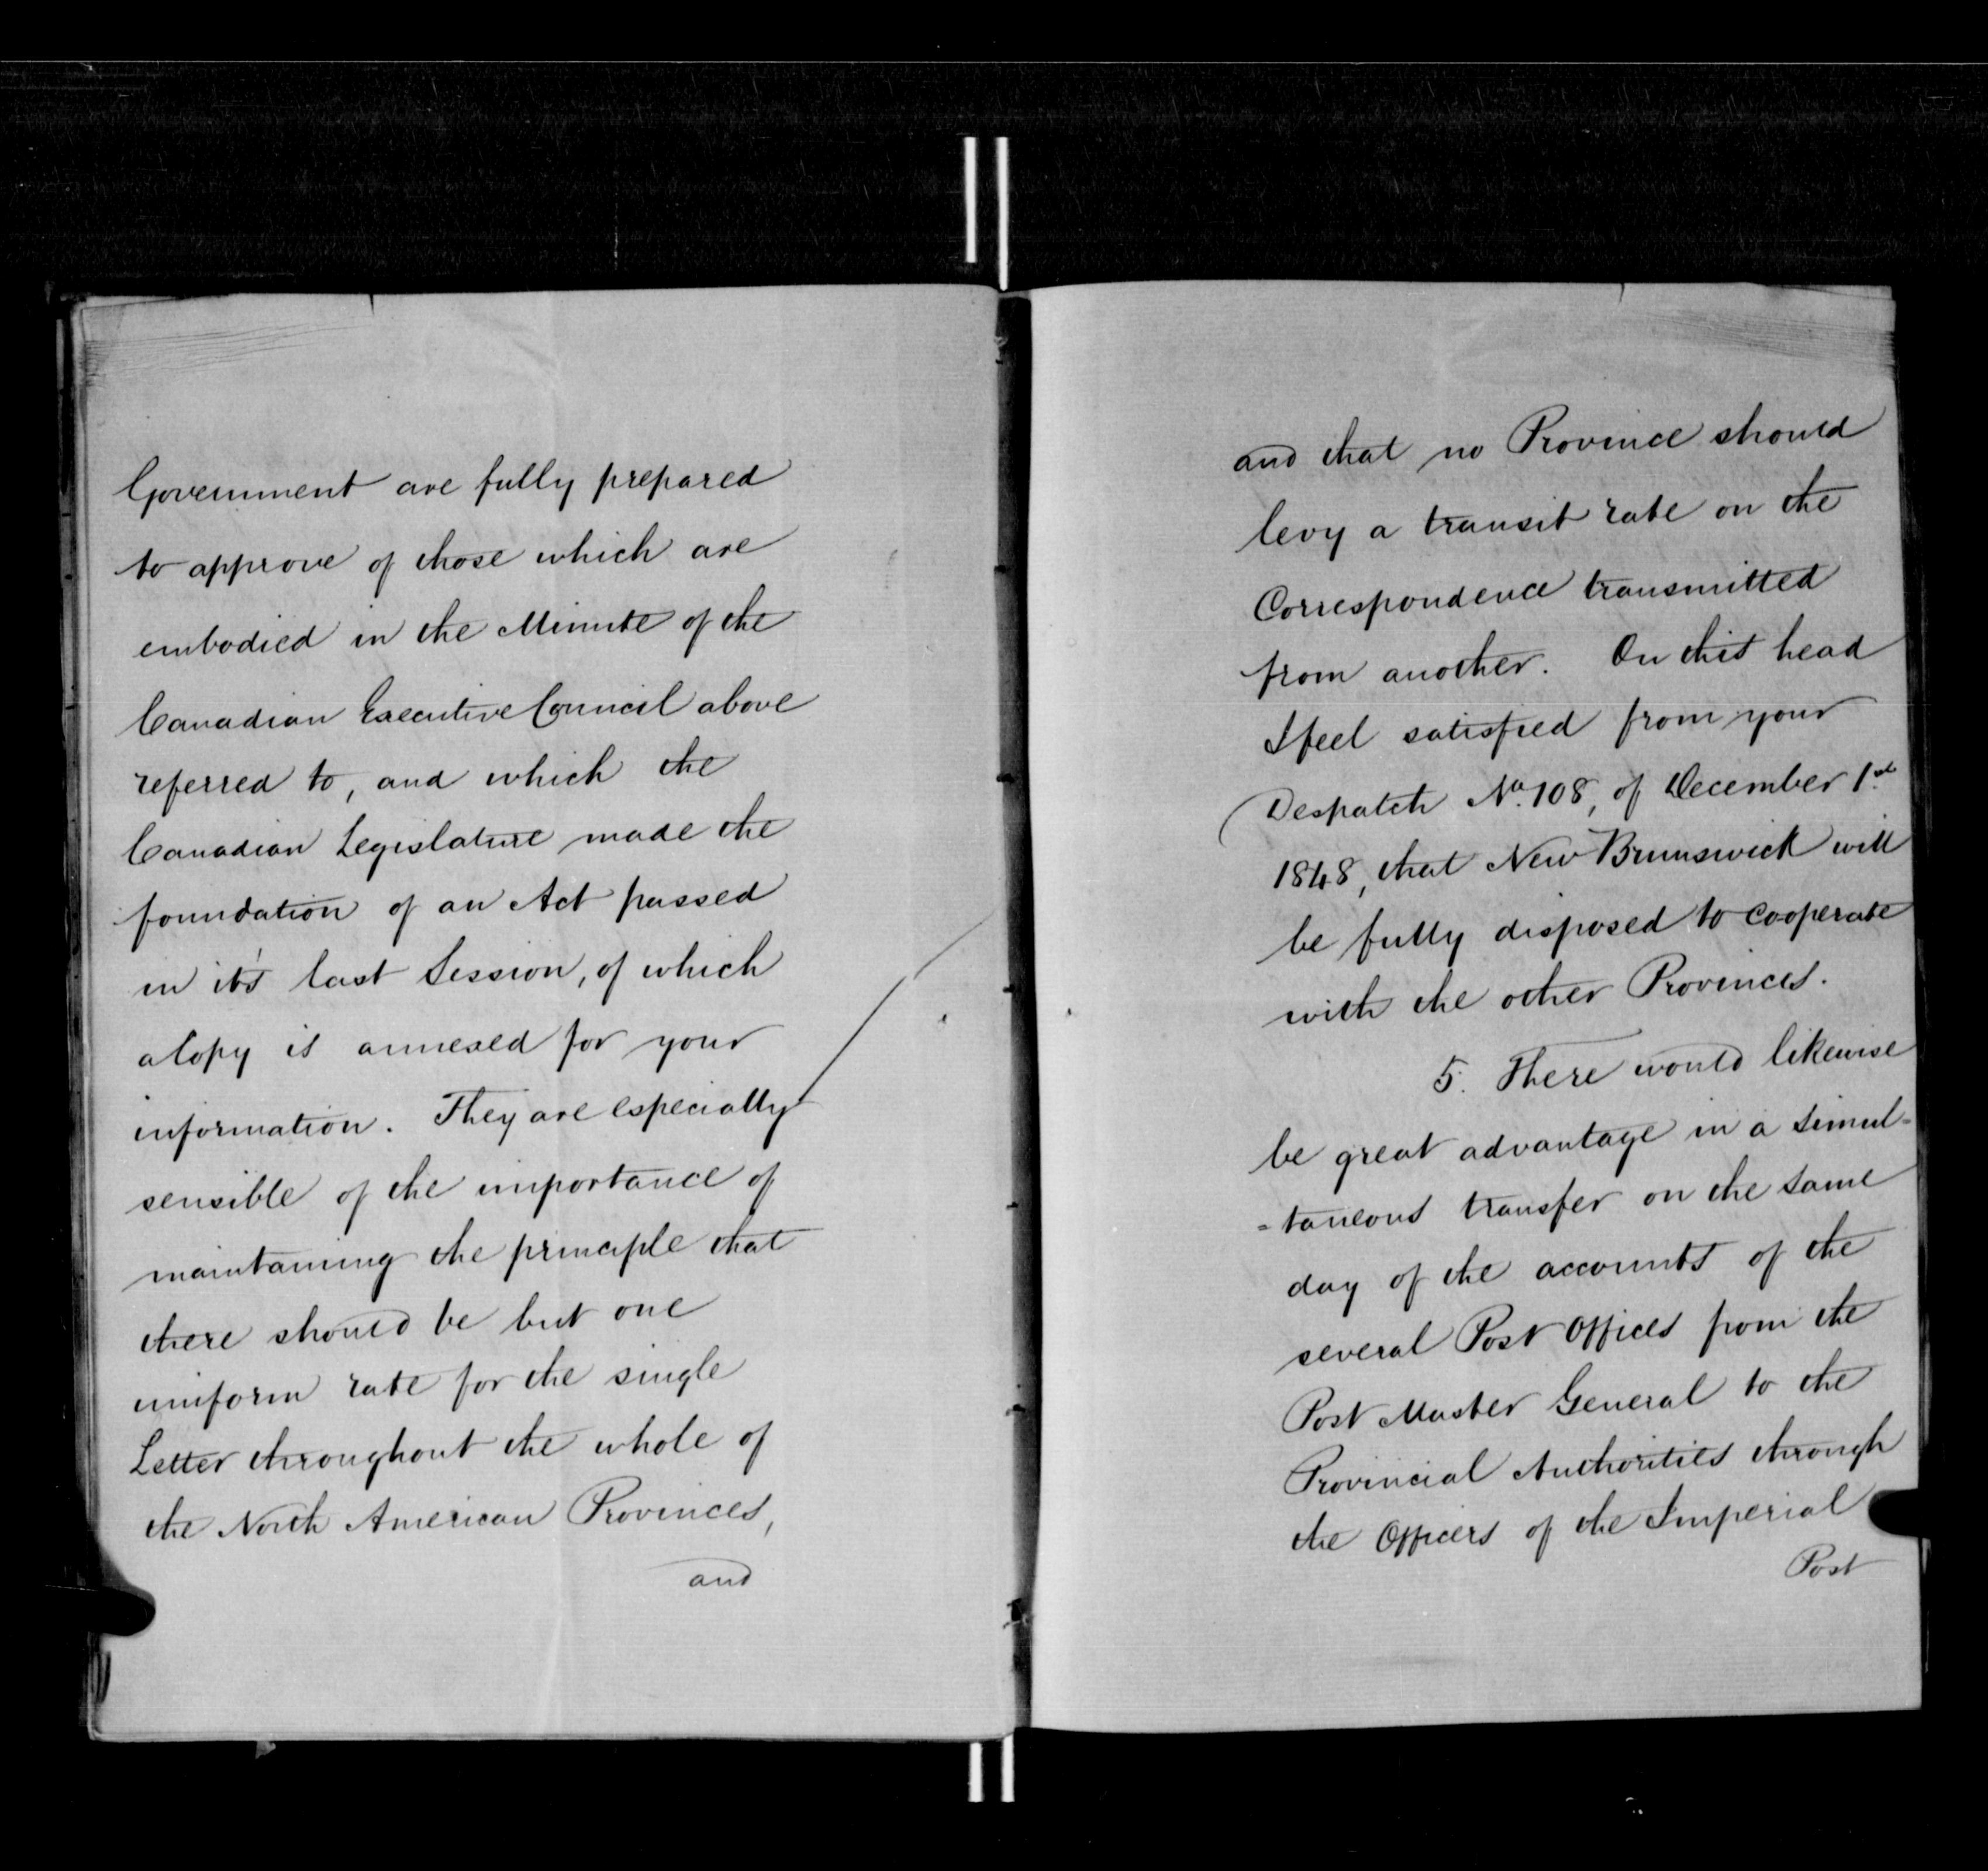 Government are fully prepared
to approve of those which are
embodied in the Minute of the
Canadian Executive Council above
referred to, and which the
Canadian Legislature made the
foundation of an Act passed
in it's last Session, of which
a Copy is annexed for your
information. They are especially
sensible of the importance of
maintaining the principle that
there should be but one
uniform rate for the single
Letter throughout the whole of
the North American Provinces,
and
and that no Province should
levy a transit rate on the
Correspondence transmitted
from another. On this head
I feel satisfied from your
Despatch No. 108, of December 1st
1848, that New Brunswick will
be fully disposed to cooperate
with the other Provinces.
5. There would likewise
be great advantage in a simul=
=taneous transfer on the same
day of the accounts of the
several Post Offices from the
Post Master General to the
Provincial Authorities through
the Officers of the Imperial
Post